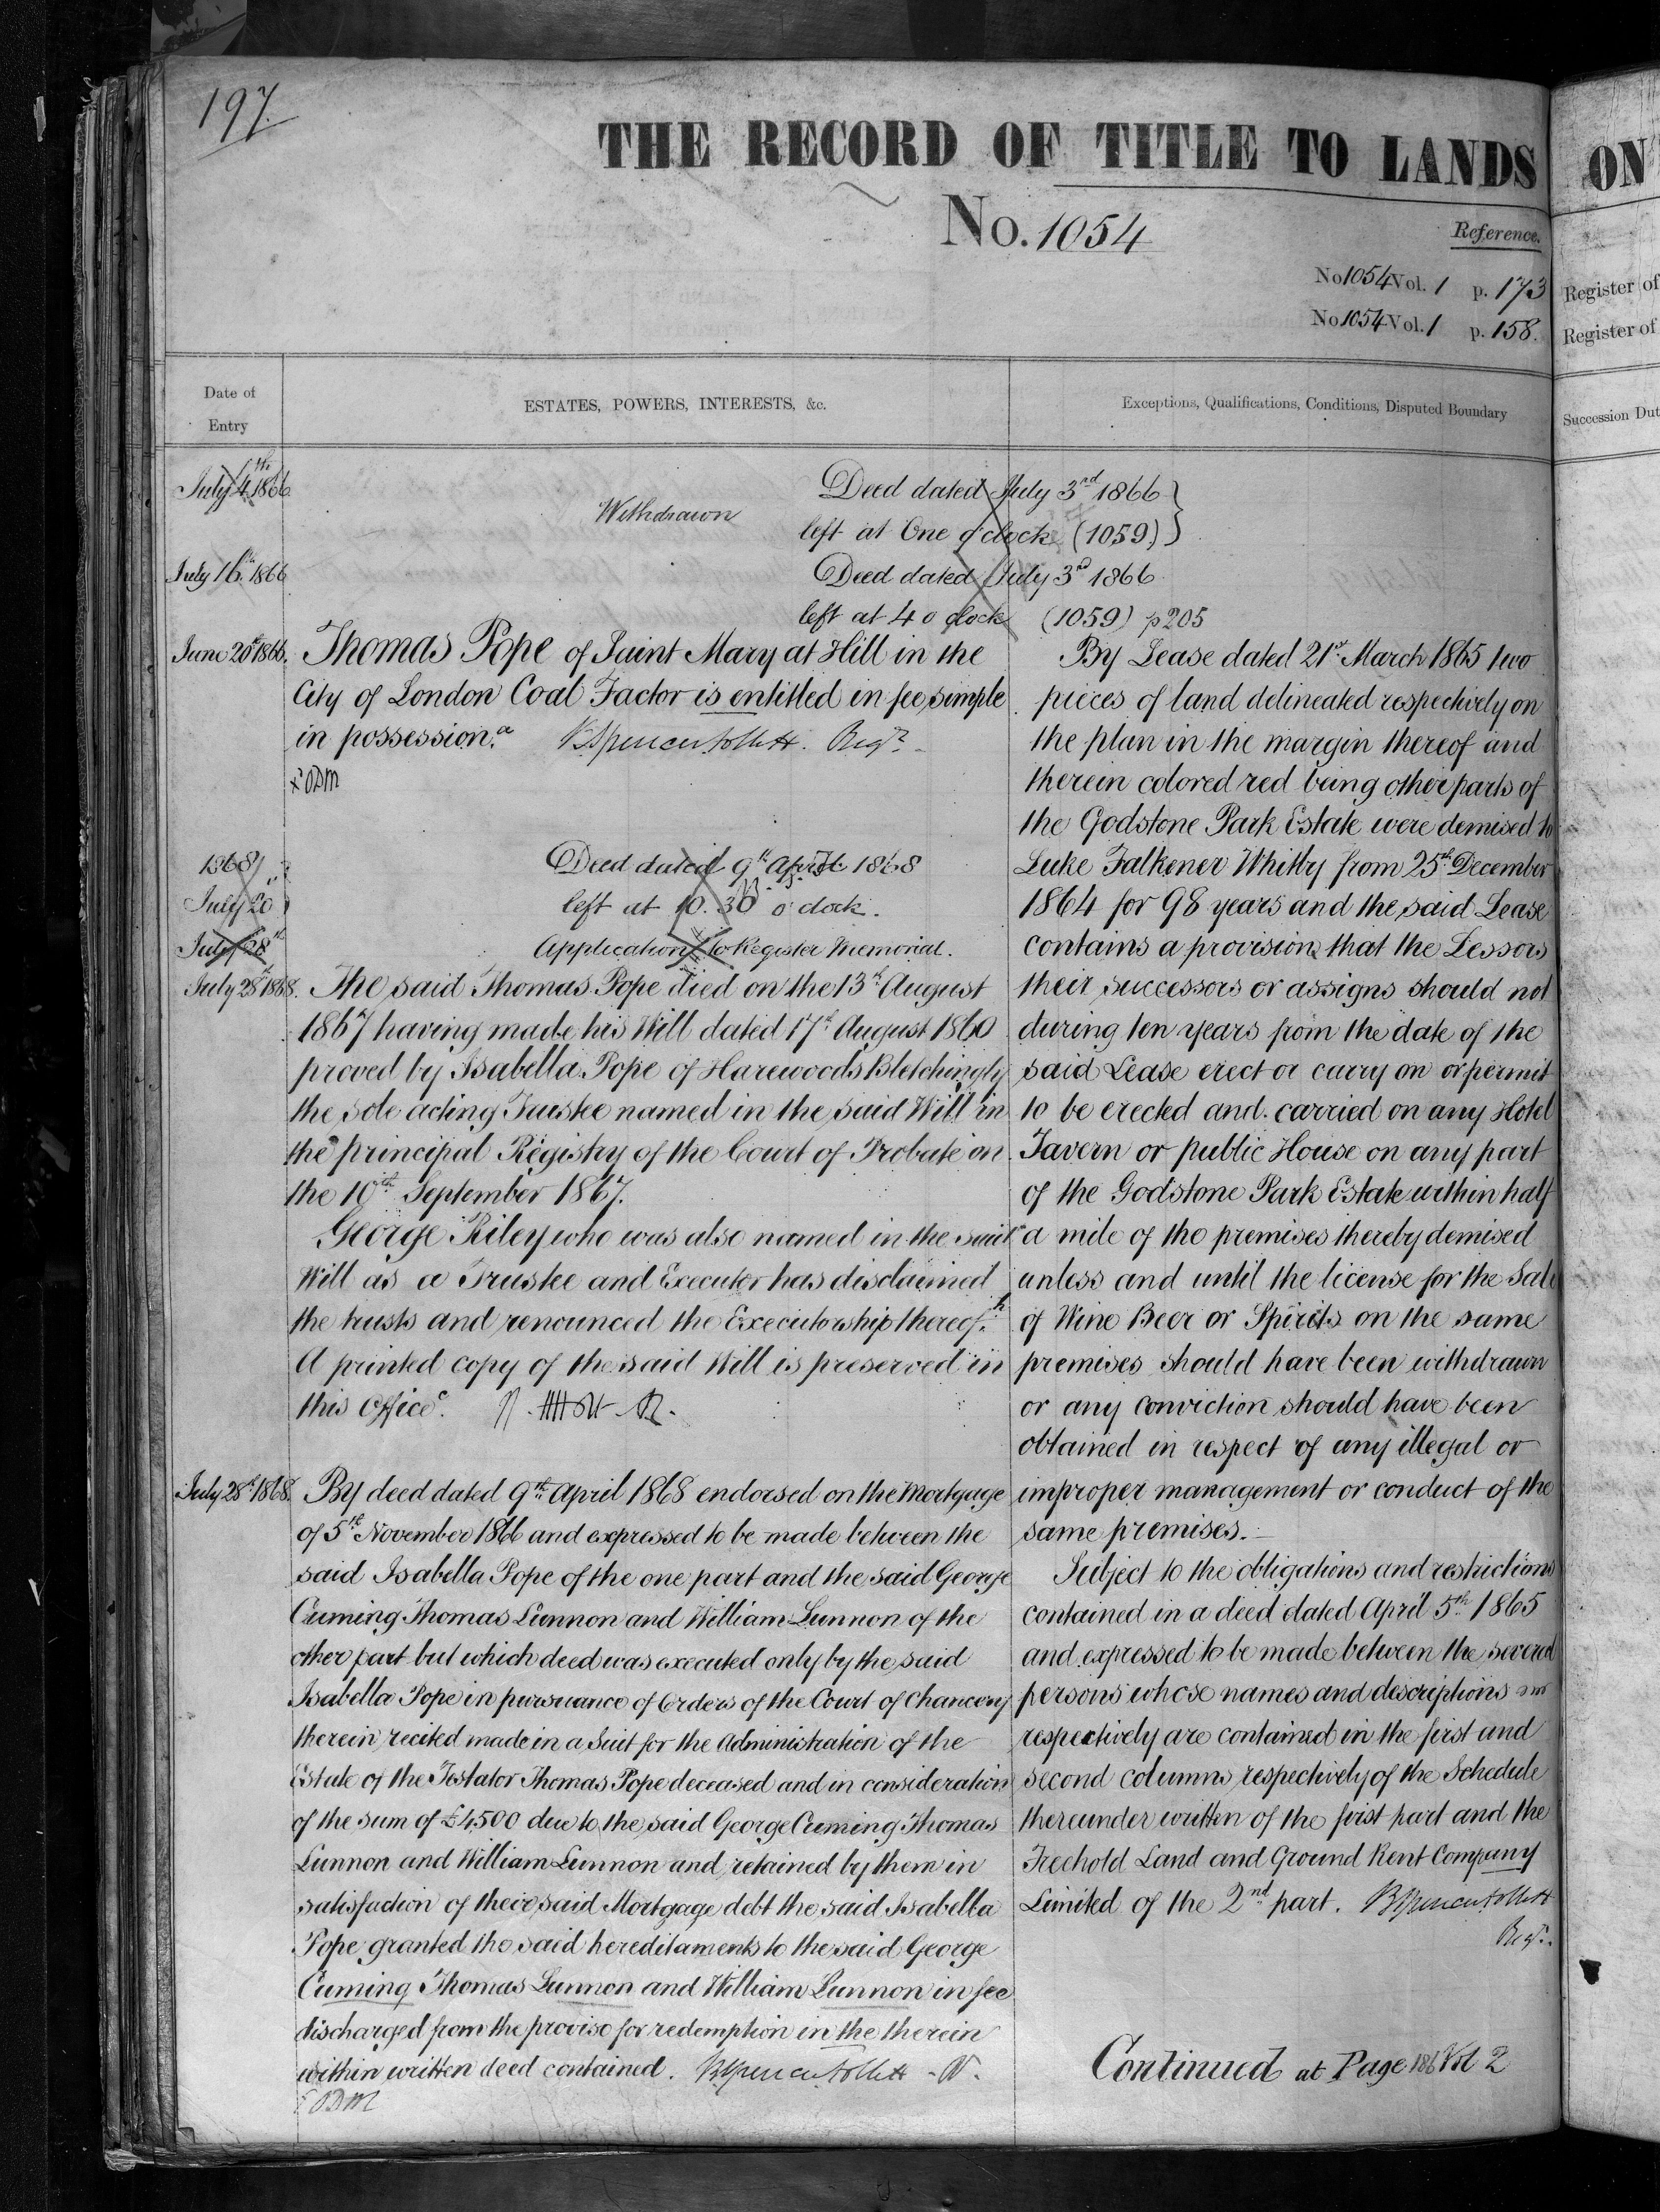 197.
THE RECORD OF TITLE TO LANDS
ON
No. 1054
Reference.
No 1054 Vol. 1 p. 173
Register of
No 1054 Vol. 1 p. 158.
Register of
Date of
Entry
ESTATES, POWERS, INTERESTS, &c.
Exceptions, Qualifications, Conditions, Disputed Boundary
Succession Dut
July 4th 1866
Withdrawn
Deed dated July 3rd 1866
left at One o'clock (1059)
July 16th 1866
Deed dated July 3rd 1866
left at 4 o clock (1059) p205
June 20th 1866.
Thomas Pope of Saint Mary at Hill in the
City of London Coal Factor is entitled in fee simple
in possession.a Regr.
1868
July 20
Deed dated 9th April 1868
left at 10.30 o'clock.
July 28th
Application to Register Memorial.
July 28th 1868.
The said Thomas Pope died on the 13th August
1867 having made his Will dated 17th August 1860
proved by Isabella Pope of Harewoods Bletchingly
the sole acting Trustee named in the said Will in
the principal Registry of the Court of Probate on
the 10th September 1867.
George Riley who was also named in the said
Will as a Trustee and Executor has disclaimed
the trusts and renounced the Executorship thereof.
A printed copy of the said Will is preserved in
this Office.
July 28th 1868.
By deed dated 9th April 1868 endorsed on the Mortgage
of 5th November 1866 and expressed to be made between the
said Isabella Pope of the one part and the said George
Cuming Thomas Lunnon and William Lunnon of the
other part but which deed was executed only by the said
Isabella Pope in pursuance of Orders of the Court of Chancery
therein recited made in a Suit for the Administration of the
Estate of the Testator Thomas Pope deceased and in consideration
of the sum of £4500 due to the said George Cuming Thomas
Lunnon and William Lunnon and retained by them in
satisfaction of their said Mortgage debt the said Isabella
Pope granted the said hereditaments to the said George
Cuming Thomas Lunnon and William Lunnon in fee
discharged from the proviso for redemption in the therein
within written deed contained.
By Lease dated 21st March 1865 two
pieces of land delineated respectively on
the plan in the margin thereof and
therein colored red being other parts of
the Godstone Park Estate were demised to
Luke Falkener Whitby from 25th December
1864 for 98 years and the said Lease
contains a provision that the Lessors
their successors or assigns should not
during ten years from the date of the
said Lease erect or carry on or permit
to be erected and carried on any Hotel
Tavern or public House on any part
of the Godstone Park Estate within half
a mile of the premises thereby demised
unless and until the license for the Sale
of Wine Beer or Spirits on the same
premises should have been withdrawn
or any conviction should have been
obtained in respect of any illegal or
improper management or conduct of the
same premises.
Subject to the obligations and restrictions
contained in a deed dated April 5th 1865
and expressed to be made between the several
persons whose names and descriptions
respectively are contained in the first and
second columns respectively of the Schedule
thereunder written of the first part and the
Freehold Land and Ground Rent Company
Limited of the 2nd part.
Regr.
Continued at Page 186 Vol 2